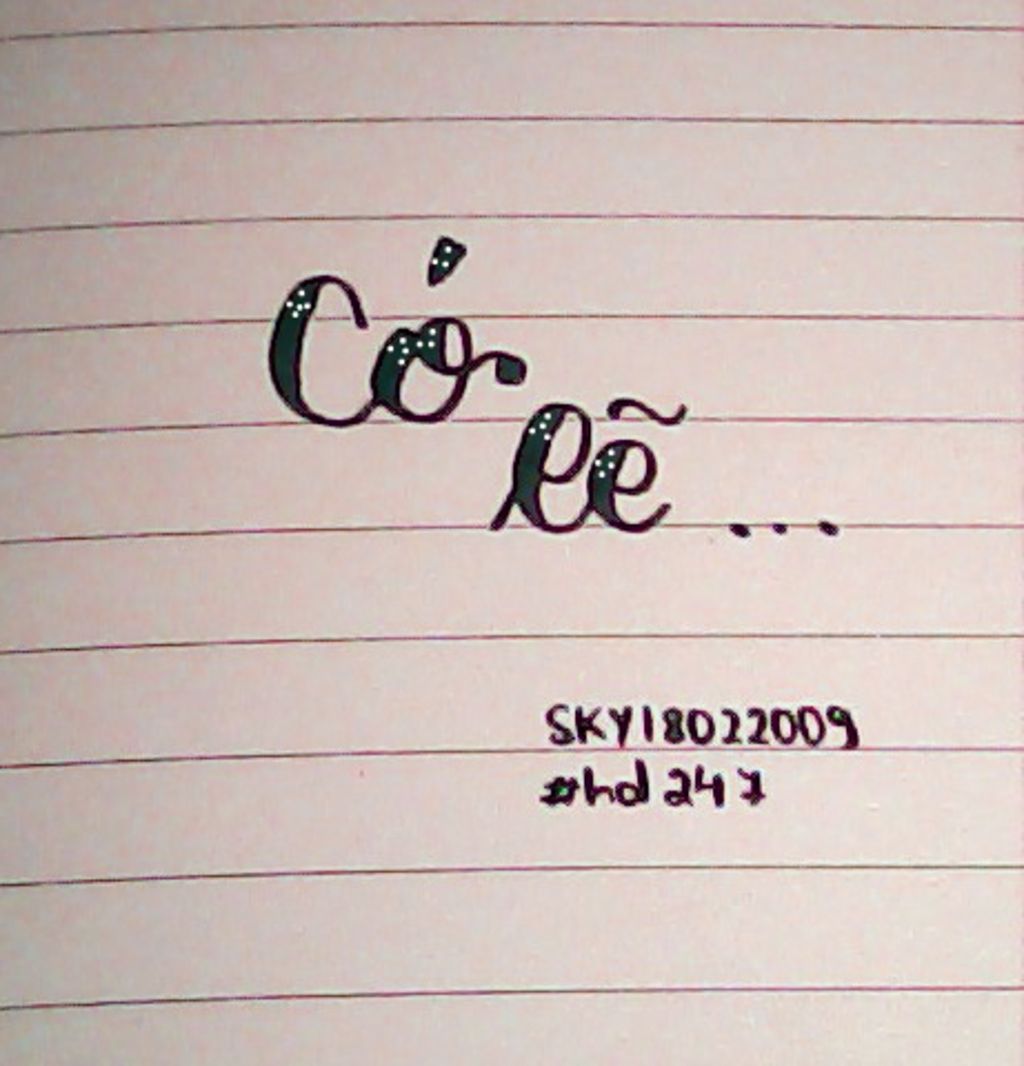 Có
lẽ ...
SKY18022009
#hd247